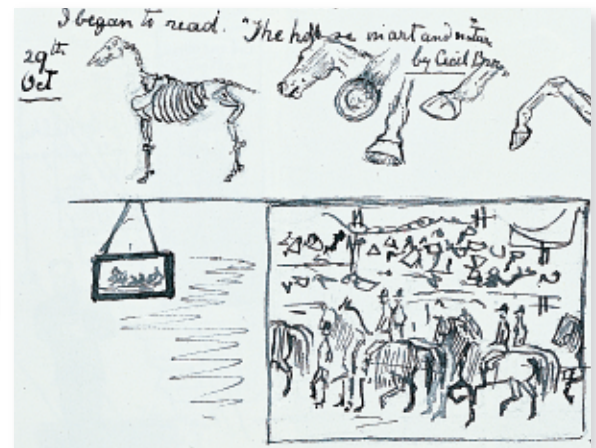 I began to read. "The horse in art and nature"
by Cecil Brown
29th
Oct